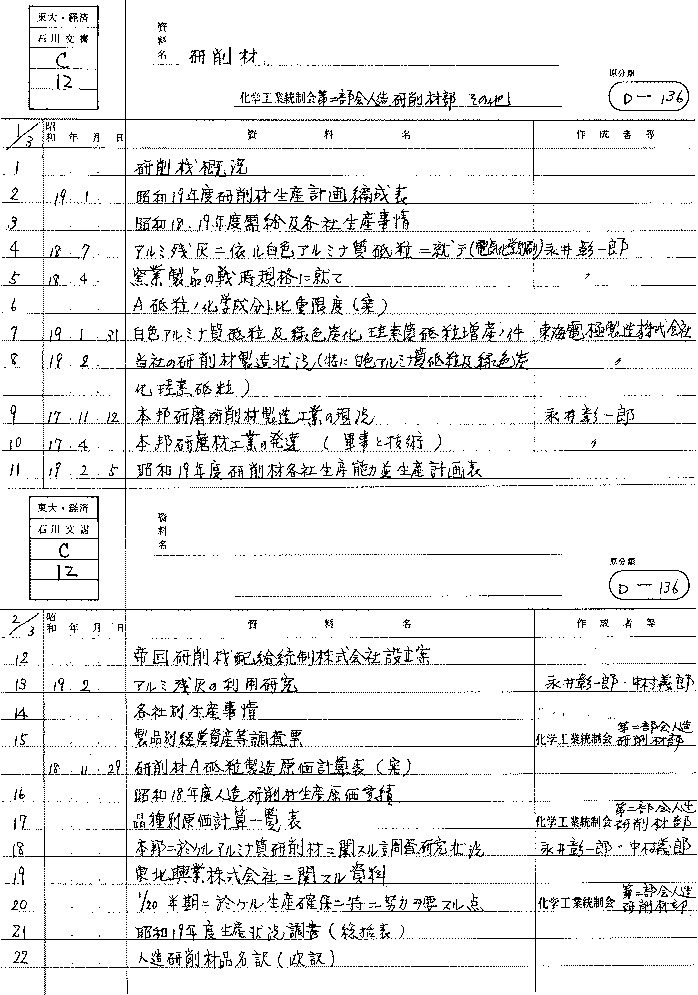 東大・経済
石川文書
C
12
資料名 研削材
化学工業統制会第二部会人造研削材部 その他
原分類
D-136
1/3 昭和 年 月 日 資料名 作成者等
1 研削材概況
2 19.1 昭和19年度研削材生産計画編成表
3 昭和18.19年度需給及各社生産事情
4 18.7 アルミ残灰ニ依ル白色アルミナ質砥粒ニ就テ(電気化学) 永井彰一郎
5 18.4 窯業製品の戦時規格に就て 〃
6 A砥粒ノ化学成分ト比重限度(案)
7 19.1.31 白色アルミナ質砥粒及緑色炭化珪素質砥粒増産ノ件 東海電極製造株式会社
8 19.2. 当社の研削材製造状況(特に白色アルミナ質砥粒及緑色炭 〃
化珪素砥粒)
9 17.11.12 本邦研磨研削材製造工業の現況 永井彰一郎
10 17.4. 本邦研磨材工業の発達 (軍事と技術) 〃
11 19.2.5 昭和19年度研削材各社生産能力並生産計画表
東大・経済
石川文書
C
12
資料名
原分類
D-136
2/3 昭和 年 月 日 資料名 作成者等
12 帝国研削材配給統制株式会社設立案
13 19.2. アルミ残灰の利用研究 永井彰一郎・中村義郎
14 各社別生産事情
15 製品別経営資産等調査票 化学工業統制会 第二部会人造研削材部
18.11.29 研削材A砥粒製造原価計算表(案)
16 昭和18年度人造研削材生産原価実績
17 品種別原価計算一覧表 化学工業統制会 第二部会人造研削材部
18 本邦ニ於ケルアルミナ質研削材ニ関スル調査研究状況 永井彰一郎・中村義郎
19 東北興業株式会社ニ関スル資料
20 1/20半期ニ於ケル生産確保ニ特ニ努力ヲ要スル点 化学工業統制会 第二部会人造研削材部
21 昭和19年度生産状況調書(総括表)
22 人造研削材品名訳(改訳)